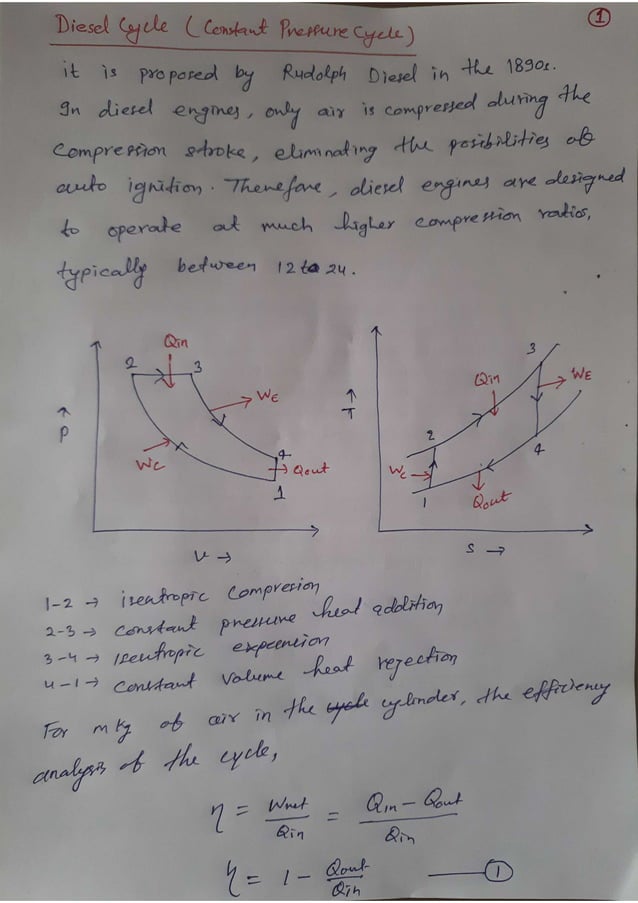 Diesel Cycle (Constant Pressure Cycle)
1
it is proposed by Rudolph Diesel in the 1890s.
In diesel engines, only air is compressed during the
Compression stroke, eliminating the posibilities of
auto ignition. Therefore, diesel engines are designed
to operate at much higher compression ratios,
typically between 12 to 24.
Qin
2
3
WE
WC
4
Qout
1
P
V →
3
Qin
WE
T
2
4
Wc
1
Qout
S →
1-2 → isentropic Compresion
2-3 → Constant pressure heat addition
3-4 → Isentropic expencion
4-1 → Constant Volume heat rejection
For m kg of air in the cycle cylinder, the efficiency
analysis of the cycle,
η = Wnet / Qin = Qin - Qout / Qin
η = 1 - Qout / Qin —— 1